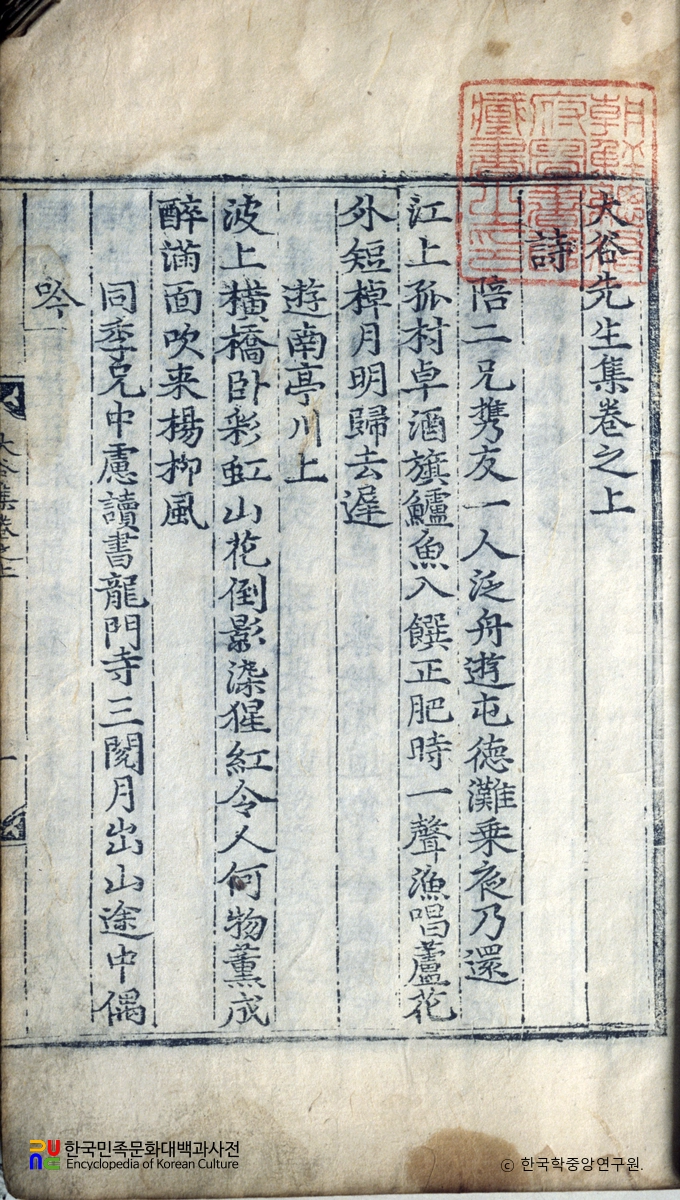 大谷先生集卷之上
詩
陪二兄携友一人泛舟遊屯德灘乗夜乃還
江上孤村卓酒旗鱸魚入饌正肥時一聲漁唱蘆花
外短棹月明歸去遅
遊南亭川上
波上横橋卧彩虹山花倒影染猩紅令人何物薰成
醉滿面吹来楊柳風
同季兄中慮讀書龍門寺三閱月出山途中偶
吟
大谷集卷之上
一
한국민족문화대백과사전
Encyclopedia of Korean Culture
© 한국학중앙연구원.